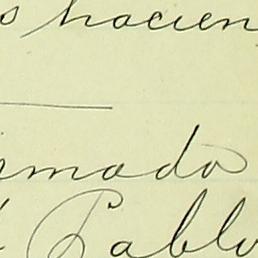 s hacien
rmado
Pablo